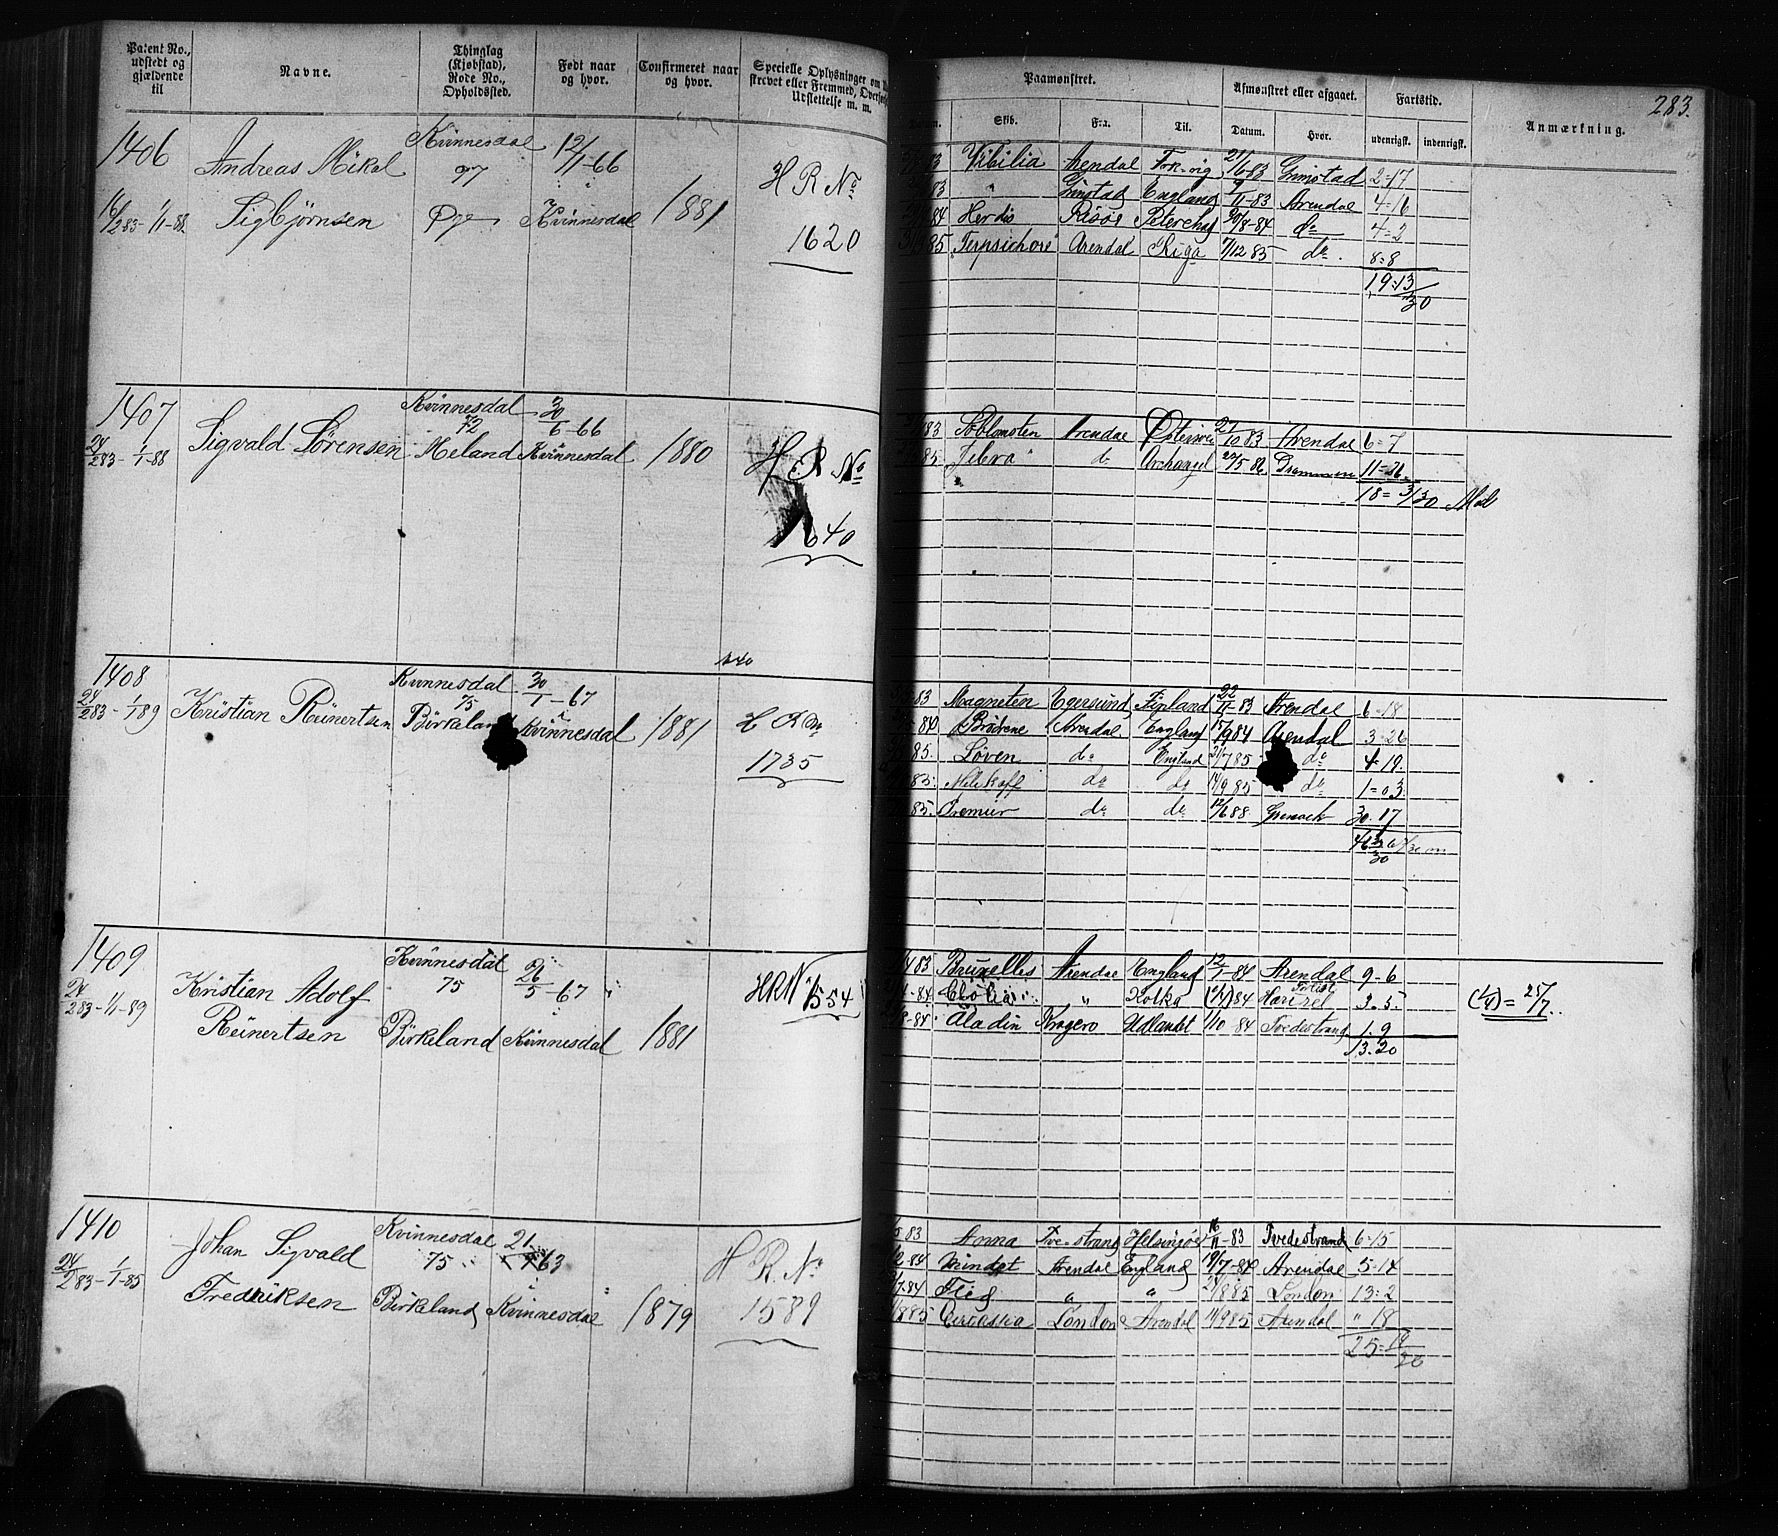 Patent No., udstedt og gjældende til
Navne.
Thinglag (Kjøbstad), Rode No., Opholdssted.
Født naar og hvor.
Confirmeret naar og hvor.
Specielle Oplysninger om
skrevet eller Fremmed,
Udslettelse m. m.
Paamønstret.
Afmønstret eller afgaaet.
Fartstid.
Anmærkning.
283.
Skib. Fra. Til. Datum. Hvor. udenrigsk. indenrigsk.
1406
Kvinnesdal 12/1-66
Andreas Mikal 97 H R No
16/2 83 - 1/1-88 Sigbjørnsen Øye Kvinnesdal 1881
1620
83 Vibilia Arendal 21/6 83 Grimstad 2-17
83 " Grimstad England 9/11-83 Arendal 4-16
84 Herdis Risør 30/8-84 do 4-2
85 Terpsichore Arendal Riga 7/12 85 do 8=8
19=13/30
1407
Kvinnesdal 30/6-66
72
24/2 83 - 1/1-88 Sigvald Sørensen Meland Kvinnesdal 1880 H R No
640
83 Arendal 10 83 Arendal 6-7
85 Zebra do Archangel 5 86 Drammen 11=26
18=3/30
1408
Kvinnesdal 30/1-67
75
24/2 83 - 1/1 89 Kristian Reinertsen Birkeland Kvinnesdal 1881 H R No
1735
83 Magneten Egersund Finland 22/11-83 Arendal 6-18
84 Brødrene Arendal England 15/9 84 Arendal 3-26
85. Løven do England 21/7 85 do 4-19.
85. do do 14/9 85 do 1=03
85. Premier do do 12/6 88 Greenock 30-17
1409
Kvinnesdal 26/5-67
75
24/2 83 - 1/1-89 Kristian Adolf HRN 1554
Reinertsen Birkeland Kvinnesdal 1881
83 Bruxelles Arendal England 12/1-84 Arendal 9-6
84 " Kotka 84 3-5
84 Aladin Kragerø Udlandet 1/10-84 Tvedestrand 1-9
13-20
1410
Kvinnesdal 21
75 63
24/2 83 - 1/1-85 Johan Sigvald H R. No
Fredriksen Birkeland Kvinnesdal 1879
1589
83 Anna Tvedestrand Helsingør 16/11-83 Tvedestrand 6-15
84 Mindet Arendal England 19/7-84 Arendal 5-14
84 Flid " " 85 London 13-2
85 Circassia London Arendal 11/9 85 Arendal " 18
25=19/30